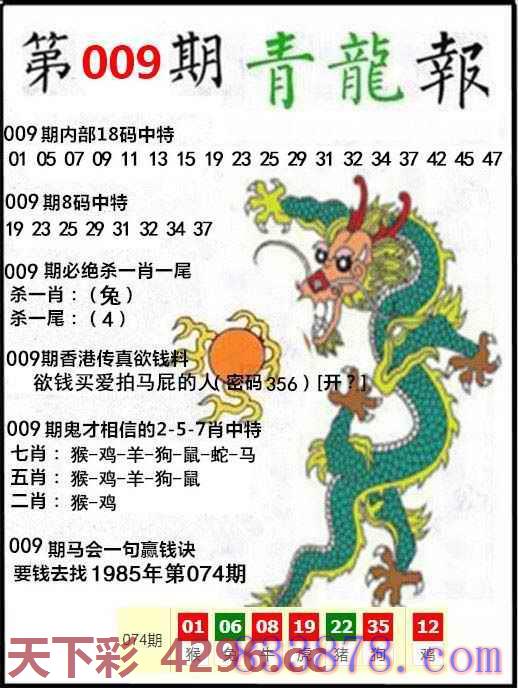 第009期青龍報
009期内部18码中特
01 05 07 09 11 13 15 19 23 25 29 31 32 34 37 42 45 47
009期8码中特
19 23 25 29 31 32 34 37
009期必绝杀一肖一尾
杀一肖：（兔）
杀一尾：（4）
009期香港传真欲钱料
欲钱买爱拍马屁的人（密码356）[开？]
009期鬼才相信的2-5-7肖中特
七肖：猴-鸡-羊-狗-鼠-蛇-马
五肖：猴-鸡-羊-狗-鼠
二肖：猴-鸡
009期马会一句赢钱诀
要钱去找1985年第074期
074期 01 06 08 19 22 35 12
猴 兔 牛 虎 猪 狗 鸡
天下彩 4296.cc